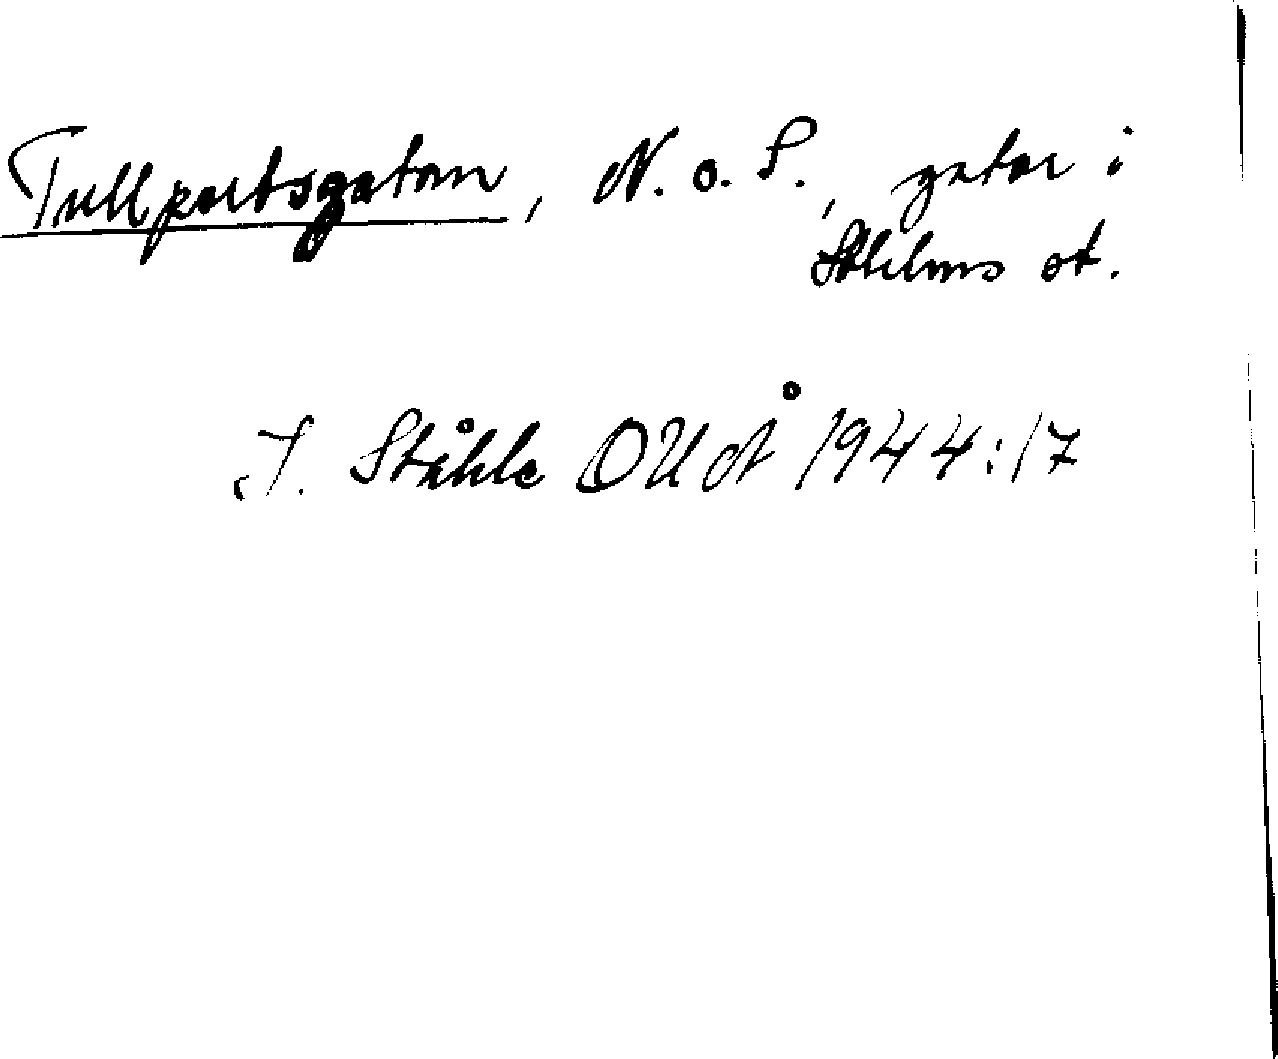 Tullportsgatan, N. o. S., gator i
Sthlms st.
I. Ståhle OUÅ 1944:17